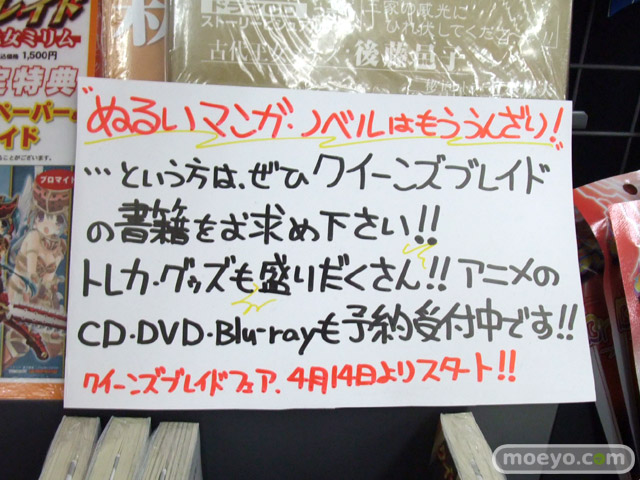 レイド
女ミリム
1,500円
定特典
ペーパー
イド
ブロマイド
ひれ伏してください
古代王
後藤
"ぬるいマンガ・ノベルはもううんざり!"
…という方は、ぜひクイーンズブレイド
の書籍をお求め下さい!!
トレカ・グッズも盛りだくさん!! アニメの
CD・DVD・Blu-rayも予約受付中です!!
クイーンズブレイドフェア、4月14日よりスタート!!
moeyo.com